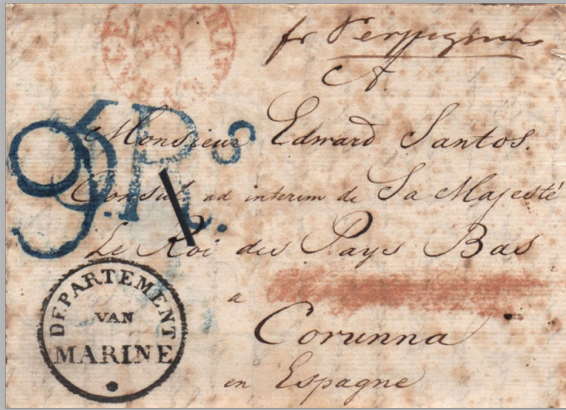 fr Perpignan
A
Monsieur Edward Santos
Consul ad interim de Sa Majesté
Le Roi des Pays Bas
a
Corunna
en Espagne
9 Rs
DEPARTEMENT
VAN
MARINE